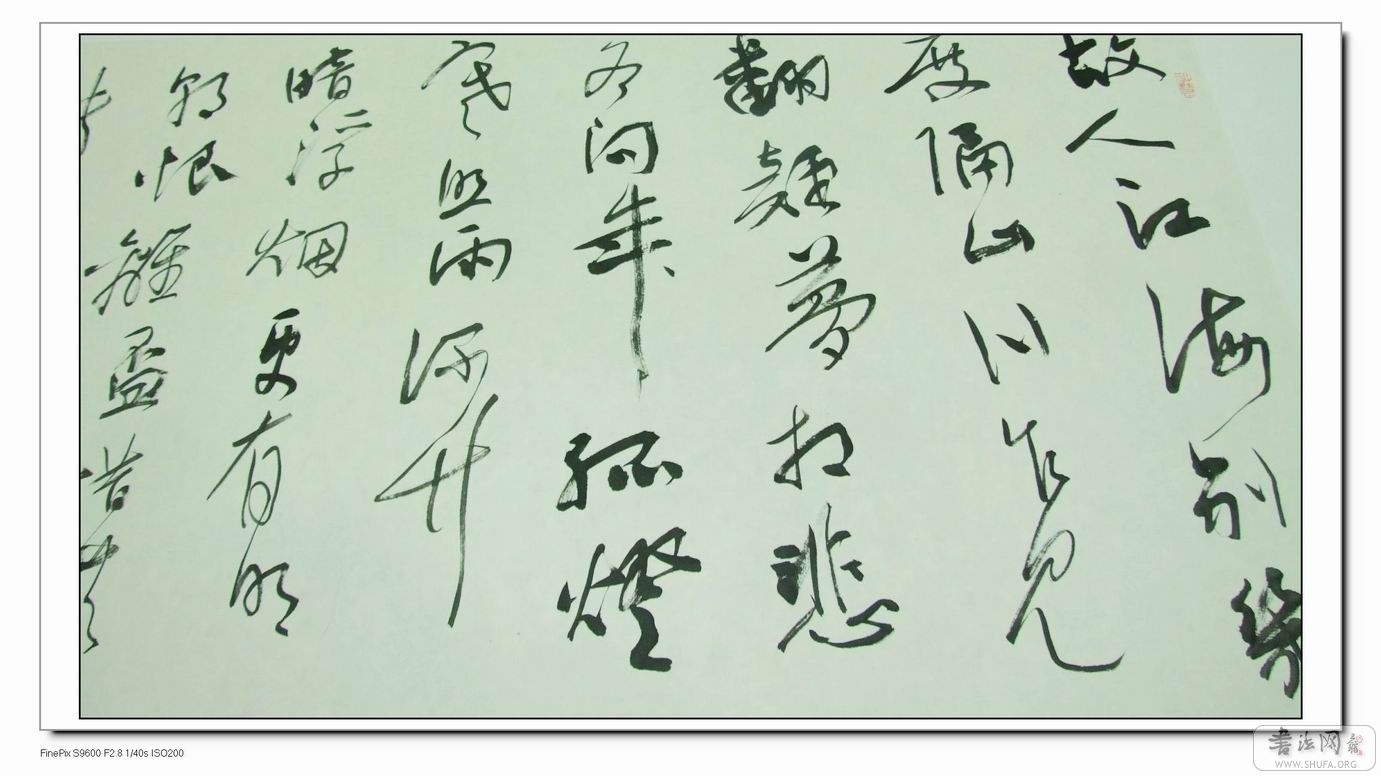 故人江海别幾
度隔山川乍見
翻疑夢相悲
各問年孤燈
寒照雨深竹
暗浮烟更有明
朝恨離盃惜共
FinePix S9600 F2.8 1/40s ISO200
書法网
WWW.SHUFA.ORG